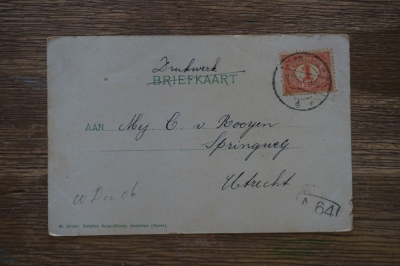 Drukwerk
BRIEFKAART
1
AAN Mej C. v. Rooyen
Springweg
Utrecht
W Dec 06
A 64